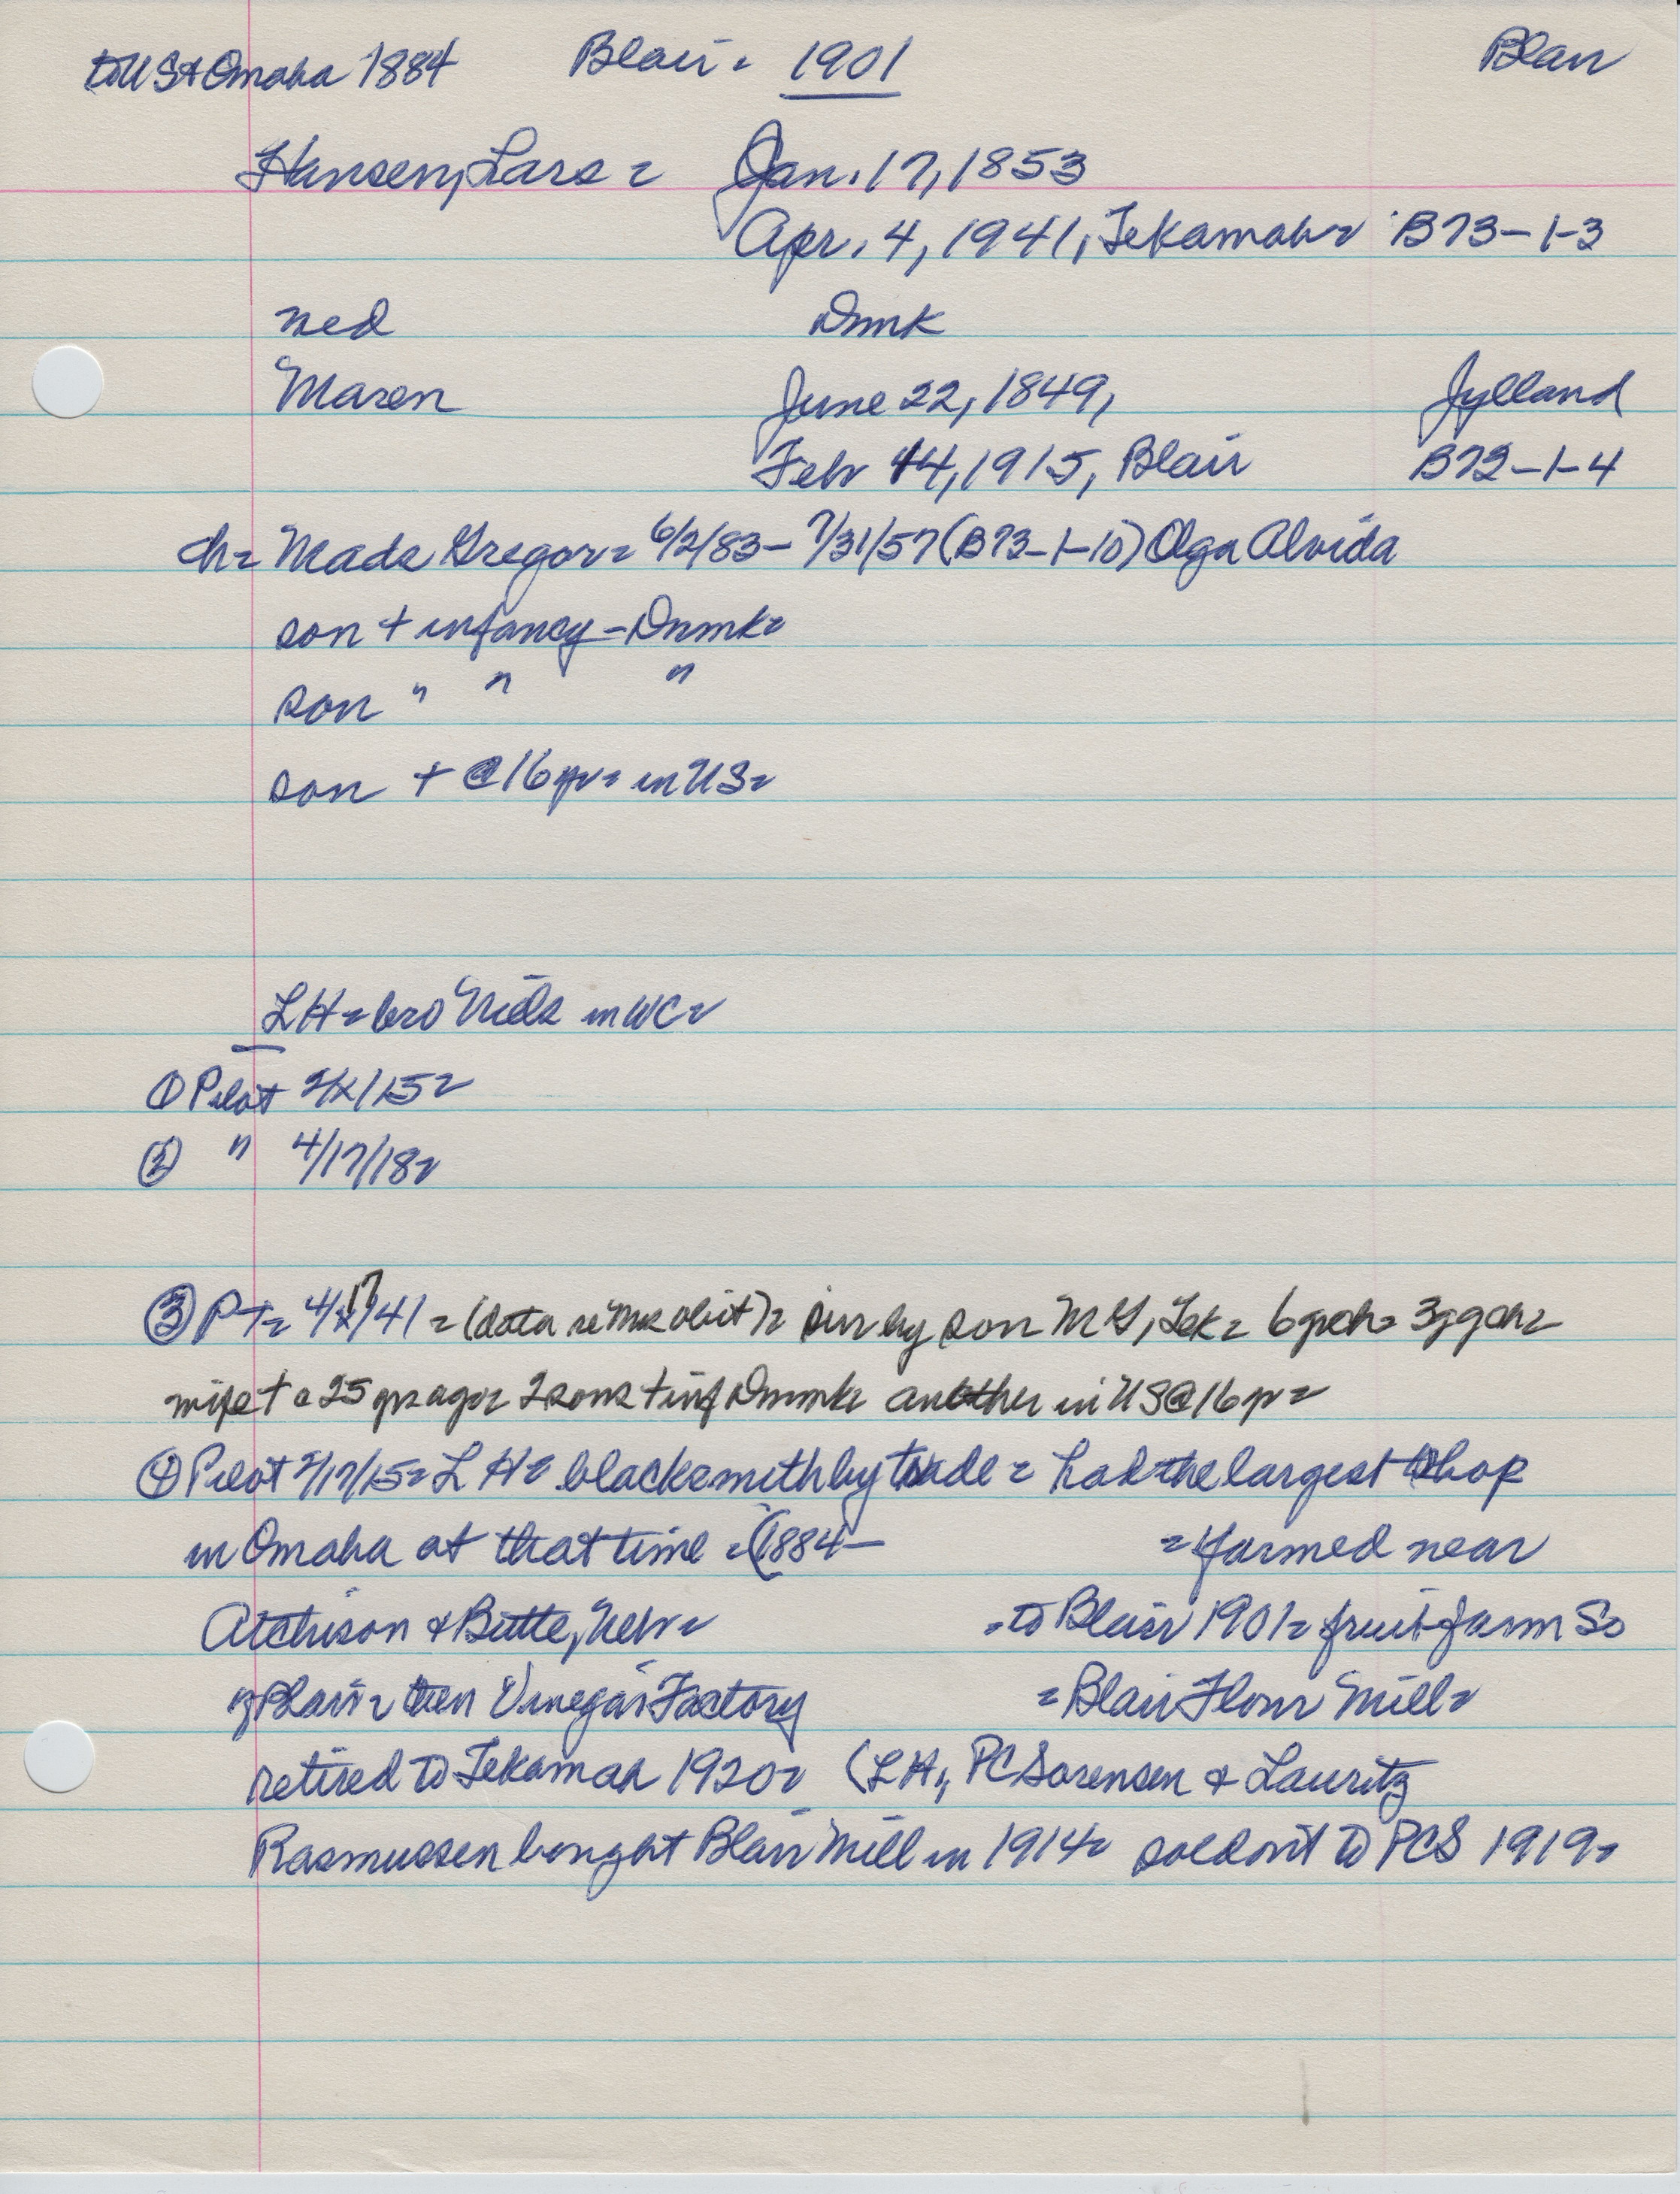 to US & Omaha 1884 Blair = 1901 Blair
Hansen, Lars = Jan. 17, 1853
Apr. 4, 1941, Tekamah = B73-1-3
med Dnmk
Maren June 22, 1849, Jylland
Febr 14, 1915, Blair B72-1-4
ch = Mads Gregor = 6/2/83 - 7/31/57 (B73-1-10) Olga Alvida
son + infancy - Dnmk =
son " " "
son + @ 16 yr = in US =
LH = bro Niels in WC =
① Pilot 2/x/15 =
② " 4/17/18 =
③ PT = 4/17/41 = (data re Mrs obit) = sur by son MG, Tek = 6 gch = 3 ggch =
wife + @ 25 yrs ago = 2 sons + inf Dnmk = another in US @ 16 yr =
④ Pilot 2/17/15 = LH = blacksmith by trade = had the largest shop
in Omaha at that time = (1884 - = farmed near
Atchison & Butte, Nebr = = to Blair 1901 = fruit farm So
of Blair = then Vinegar Factory = Blair Flour Mill =
retired to Tekamah 1920 = (LH, PC Sorensen & Lauritz
Rasmussen bought Blair Mill in 1914 = sold out to PCS 1919 =